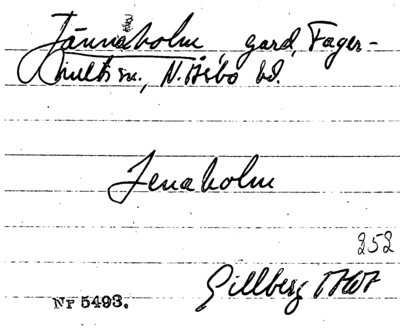 Jännaholm, gard, Fager-
hults sn., N. Åsbo hd.
Jenaholm
252
Gillberg
Nr 5493.